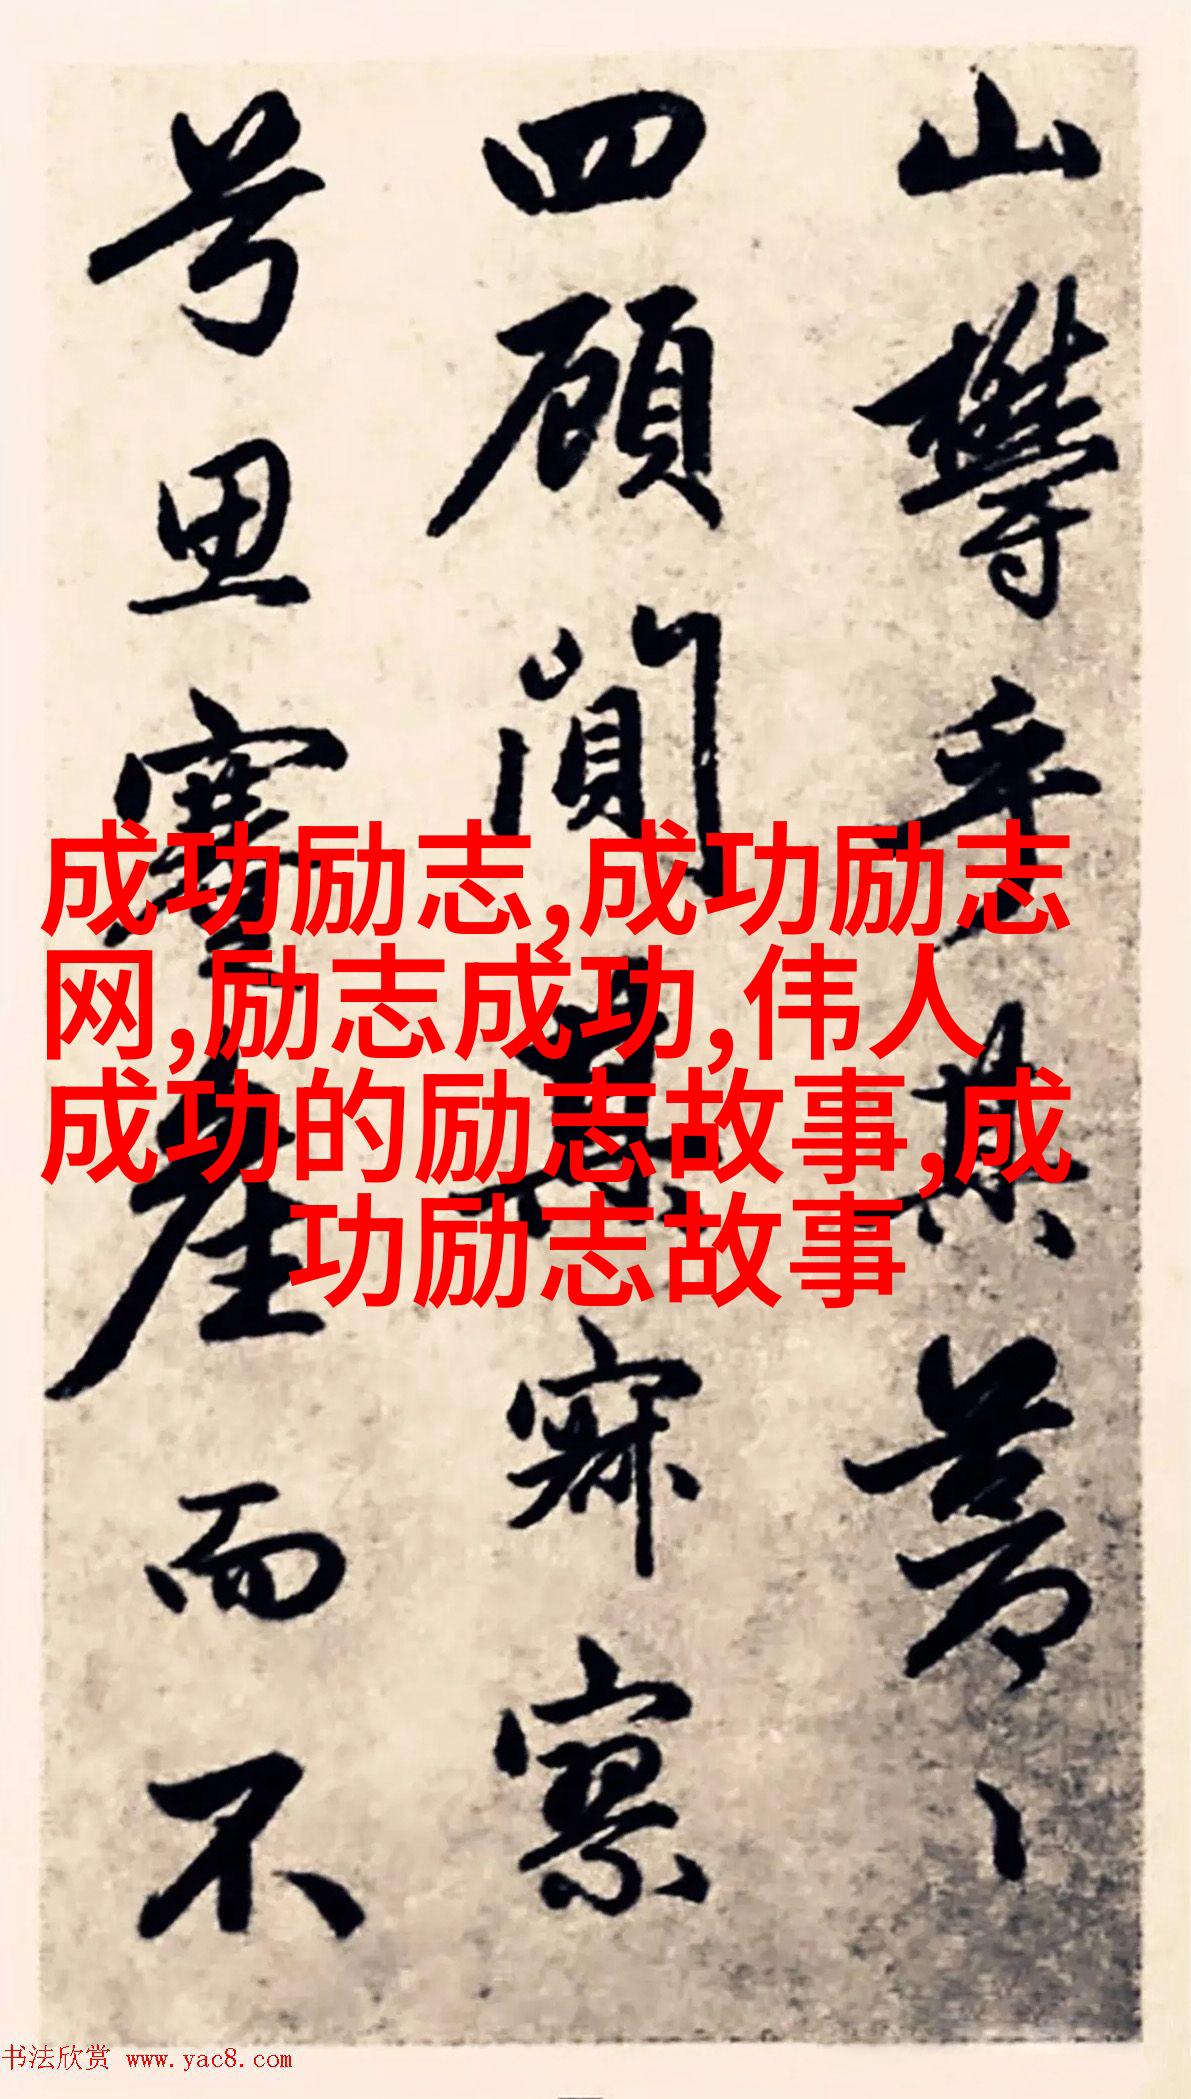 山欝乎其蒼〻
四顧闃其寂寥
兮思蹇產而不
成功励志,成功励志
网,励志成功,伟人
成功的励志故事,成
功励志故事
书法欣赏 www.yac8.com